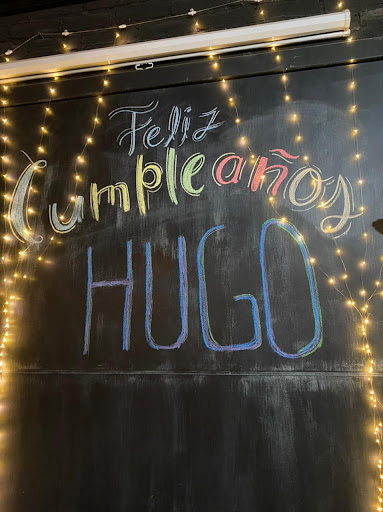 Feliz
Cumpleaños
HUGO